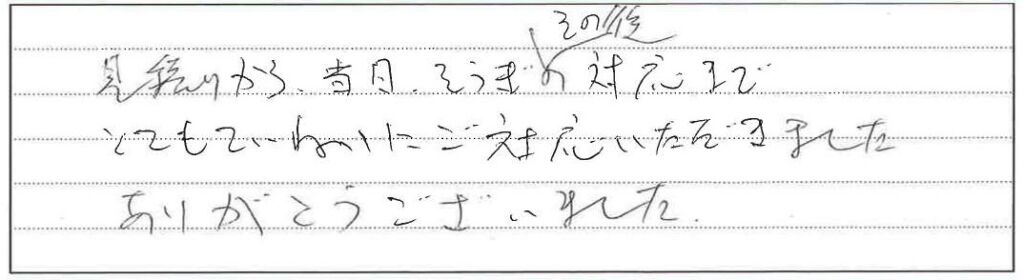 その後
見積りから、当日、そうぎの対応まで
とてもていねいにご対応いただきました
ありがとうございました.